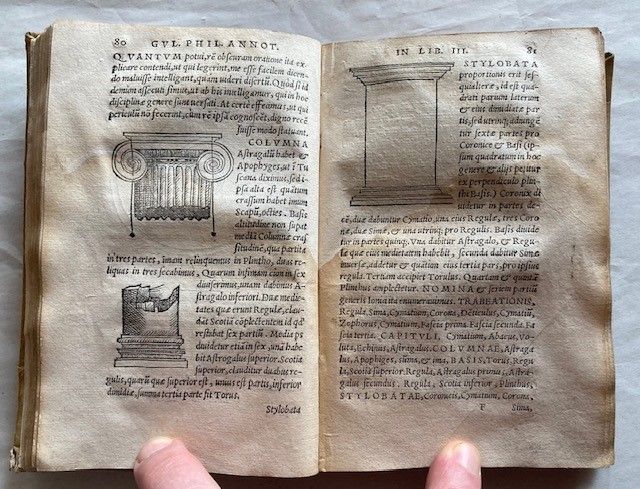 80 GVL. PHIL. ANNOT.
QVANTVM potui, rē obscuram oratione ita ex
plicare contendi, ut qui legerint, me esse facilem dicen-
do maluisse intelligant, quàm uideri disertū. Quod si id
demùm assecuti simus, ut ab his intelligamur, qui in hoc
disciplinæ genere sunt uersati. At certè effecimus, ut qui
periculū nō fecerint, cum re ipsa cognoscēt, digno recē
suisse modo statuant.
COLVMNA
Astragalū habet &
Apophyges, ut i Tu
scana diximus, sed i-
psa alta est quàtum
crassum habet imum
Scapū, octies. Basis
altitudine non supat
mediā Columnæ craſ
situdinē, qua partita
in tres partes, imam relinquemus in Plintho, duas re-
liquas in tres secabimus, Quarum infimam cùm in sex
diuiserimus, unam dabimus A-
stragalo inferiori. Duæ medie-
tates quæ erunt Regulæ, clau-
dāt Scotiā cōplectentem id qd'
restabat sex partiū. Media ps
diuidetur etiā in sex, unā habe
bit Astragalus superior. Scotia
superior, clauditur duabus re-
gulis, quarū quæ superior est, unius est partis, inferior
dimidiæ, summa tertia parte fit Torus.
Stylobata
IN LIB. III. 81
STYLOBATA
proportionis erit ses-
quialteræ, id est qua-
drati parum laterum
& eius dimidiatæ par
tis, sed utrinq; adiungē
tur sextæ partes pro
Coronice & Basi (ip-
sum quadratum in hoc
genere & alijs petitur
ex perpendiculo plin-
thi Basis.) Coronix di
uidetur in partes de-
cē, duæ dabuntur Cymatio, una eius Regulæ, tres Coro
næ, duæ Simæ, & una utrinq; pro Regulis. Basis diuide
tur in partes quinq;. Vna dabitur Astragalo, & Regu-
læ quæ eius medietatem habebit, secunda dabitur Simæ
inuersæ, addetur & quātum eius tertia pars, pro ipsius
regula. Ternam accipit Torulus. Quartam & quintā
Plinthus amplectetur. NOMINA & seriem partiū
generis Ionici ita enumerauimus. TRABEATIONIS,
Regula, Sima, Cymatium, Corona, Deticulus, Cymatiū,
Zophorus, Cymatium, Fascia prima. Fascia secunda. Fa
scia tertia. CAPITVLI, Cymatium, Abacus, Vo-
luta, Echinus, Astragalus. COLVMNAE, Astraga
lus, Apophiges, summa, & ima, BASIS, Torus. Regu
la, Scotia superior. Regula, Astragalus primus, Astra-
galus secundus. Regula, Scotia inferior. Plinthus,
STYLOBATAE, Coronicis, Cymatium, Corona,
F Sima,